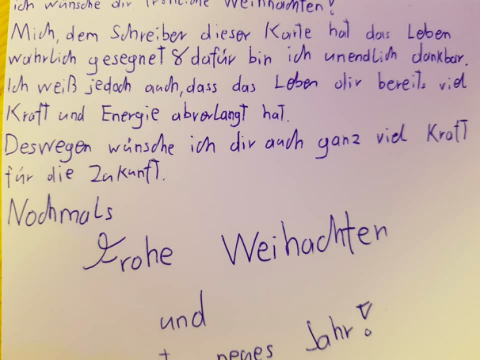 ich wünsche dir fröhliche Weihnachten!
Mich, dem Schreiber dieser Karte hat das Leben
wahrlich gesegnet & dafür bin ich unendlich dankbar.
Ich weiß jedoch auch, dass das Leben dir bereits viel
Kraft und Energie abverlangt hat.
Deswegen wünsche ich dir auch ganz viel Kraft
für die Zukunft.
Nochmals
Frohe Weihachten
und
neues Jahr!